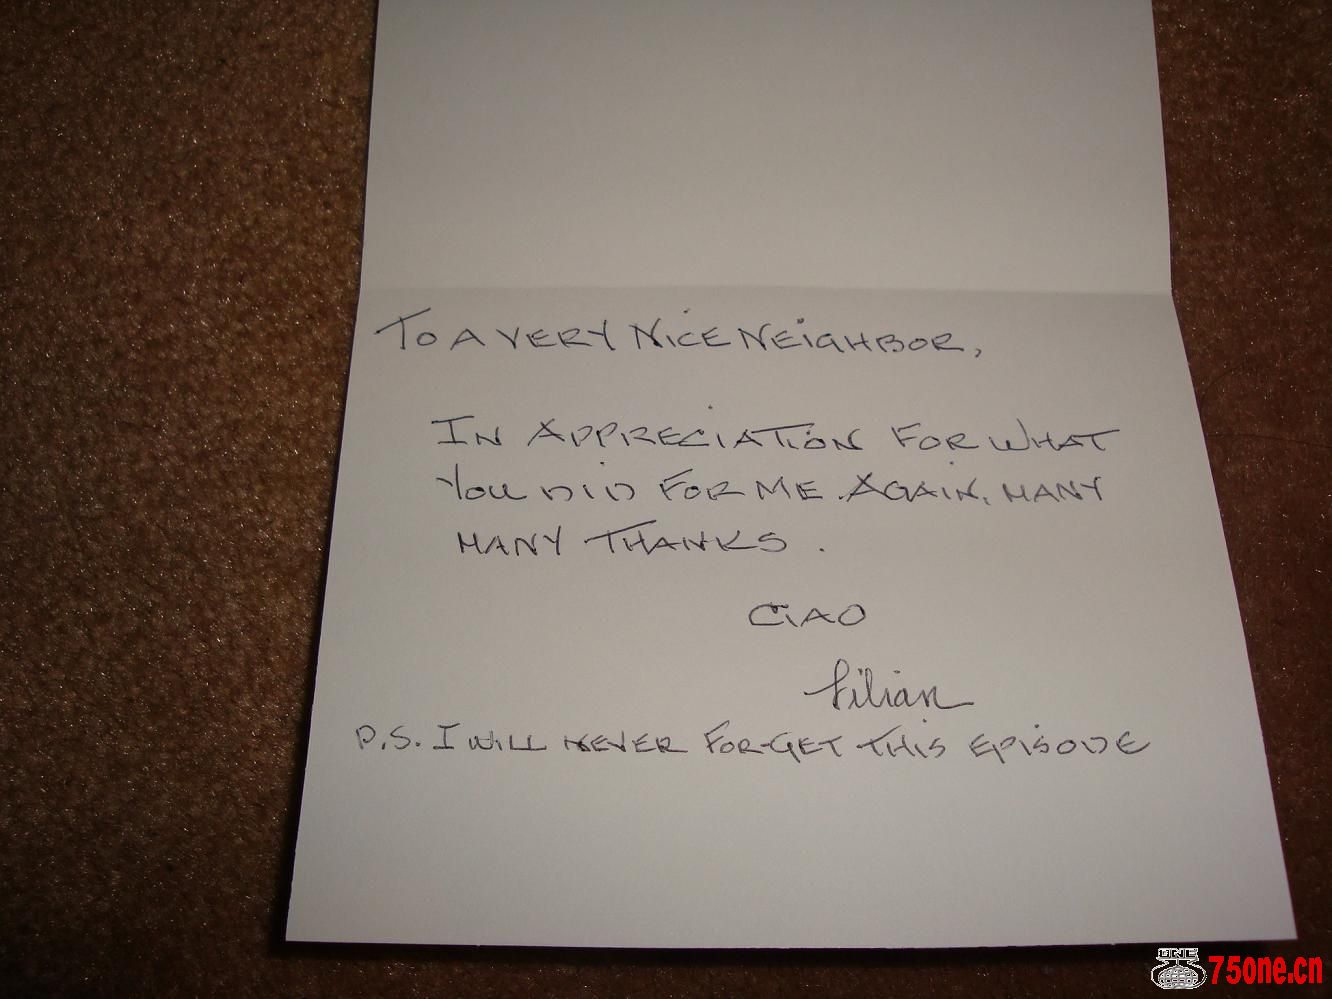 TO A VERY NICE NEIGHBOR,
IN APPRECIATION FOR WHAT
YOU DID FOR ME. AGAIN, MANY
MANY THANKS.
CIAO
Lilian
P.S. I WILL NEVER FORGET THIS EPISODE
ONE
75one.cn